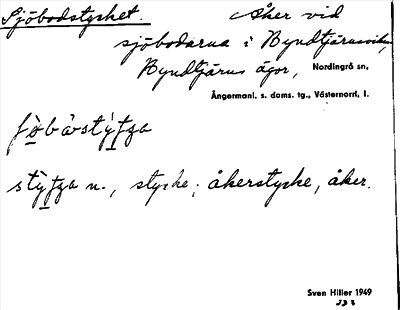 Sjöbodstycket. Åker vid
sjöbodarna i Byndtjärnsviken,
Byndtjärns ägor, Nordingrå sn,
Ångermanl. s. doms. tg., Västernorrl, l.
stycke; åkerstycke, åker.
Sven Hiller 1949